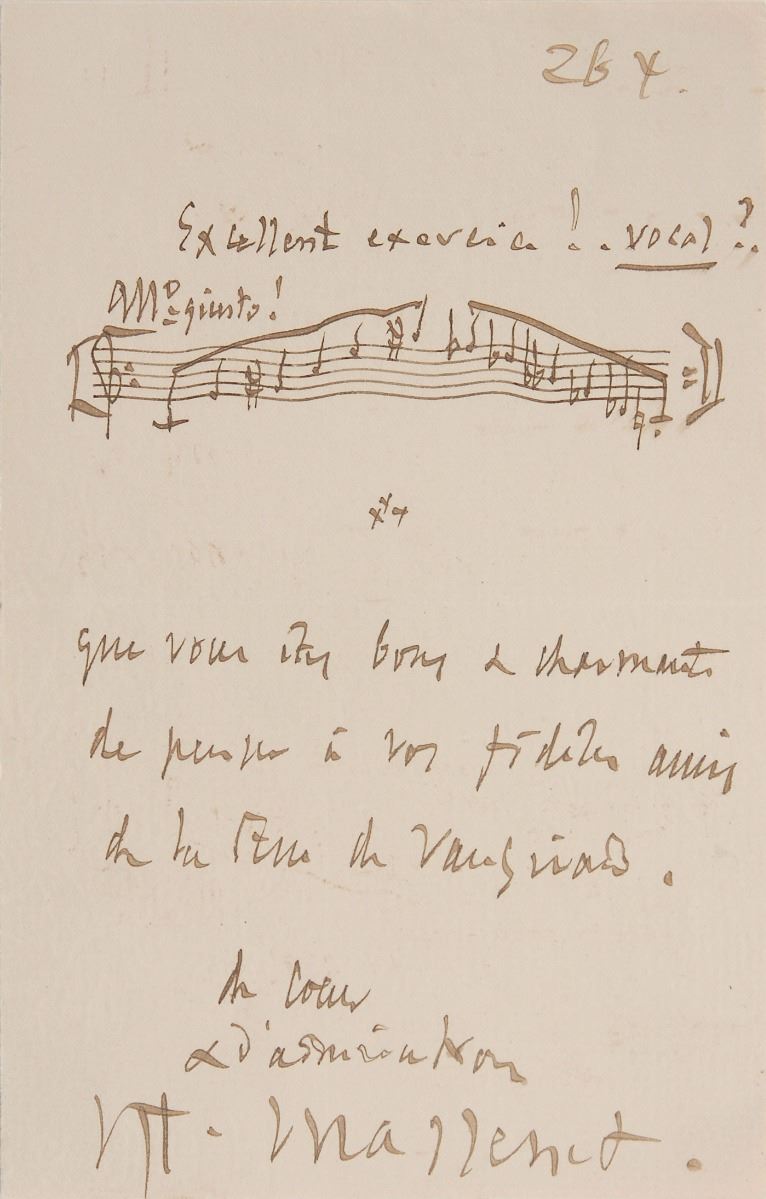 26 X.
Excellent exercice !.. vocal ?..
All⁰ giusto !
que vous êtes bons & charmants
de penser à vos fidèles amis
de la Rue de Vaugirard .
de cœur
& d'admiration
M. Massenet .